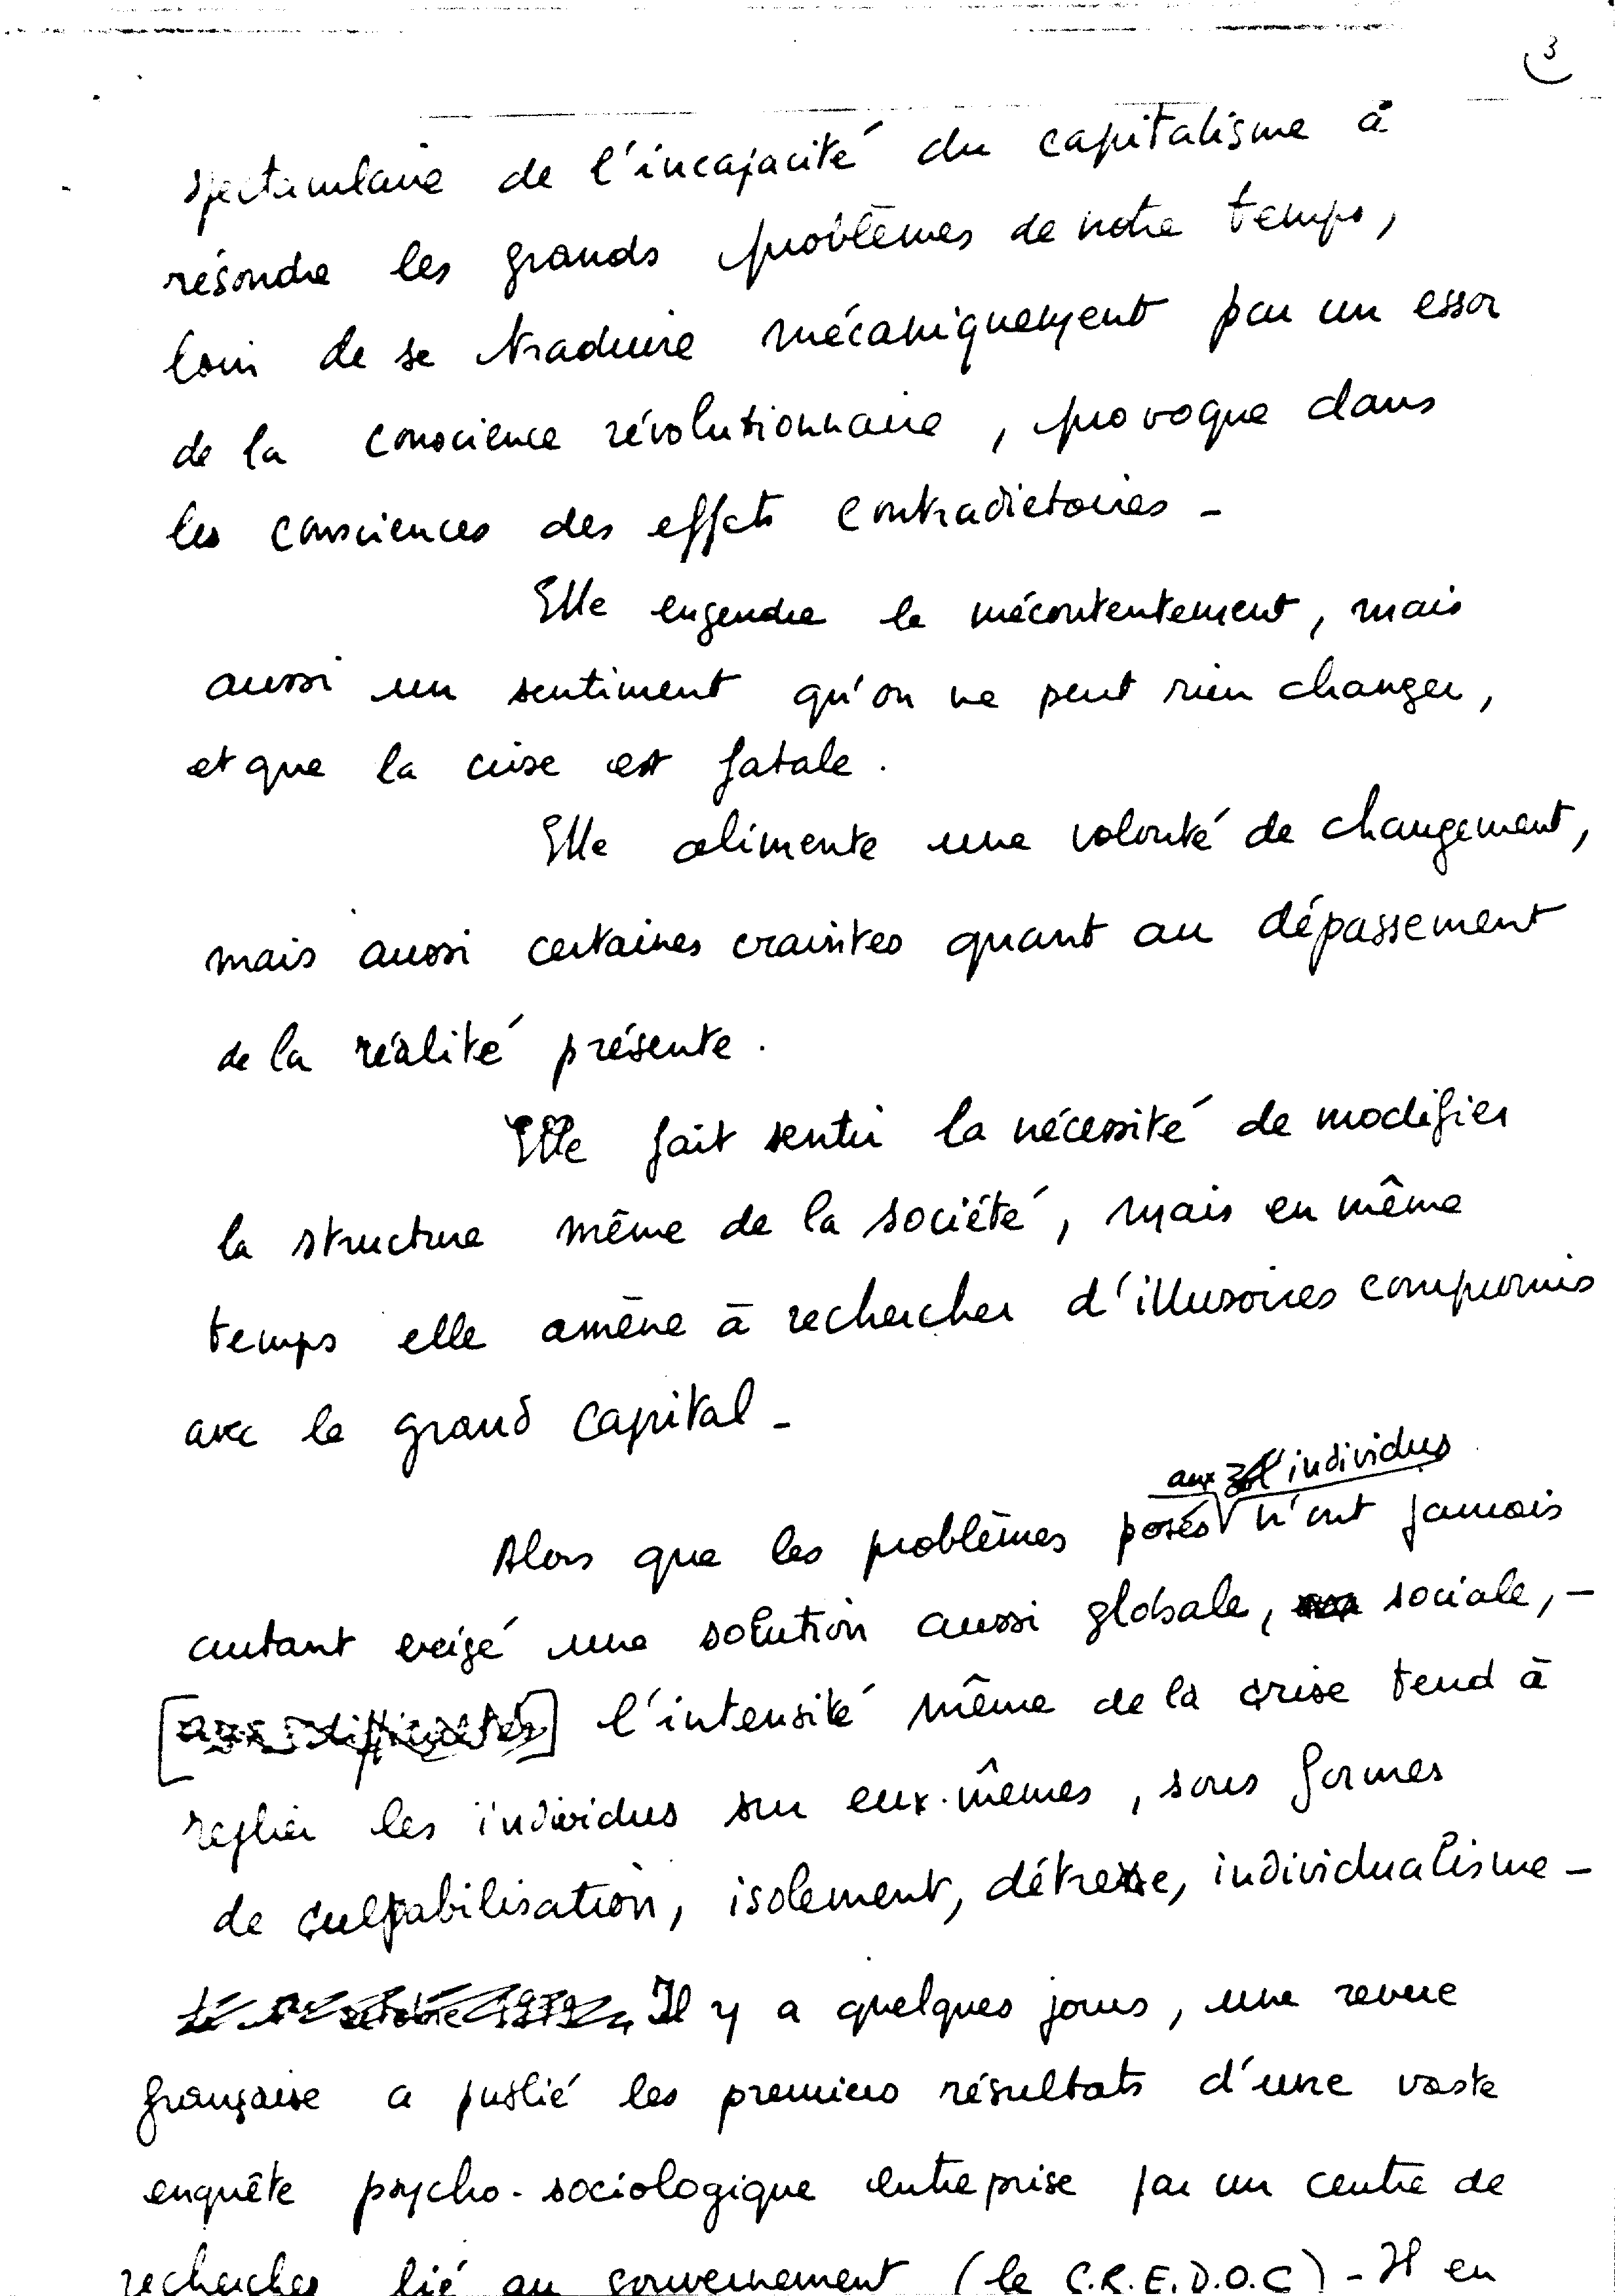 3
spectaculaire de l'incapacité du capitalisme à
résoudre les grands problèmes de notre temps,
loin de se traduire mécaniquement par un essor
de la conscience révolutionnaire, provoque dans
les consciences des effets contradictoires -
Elle engendre le mécontentement, mais
aussi un sentiment qu'on ne peut rien changer,
et que la crise est fatale.
Elle alimente une volonté de changement,
mais aussi certaines craintes quant au dépassement
de la réalité présente.
Elle fait sentir la nécessité de modifier
la structure même de la société, mais en même
temps elle amène à rechercher d'illusoires compromis
avec le grand capital -
aux individus
Alors que les problèmes posés n'ont jamais
autant exigé une solution aussi globale, sociale, -
[aux difficultés] l'intensité même de la crise tend à
replier les individus sur eux-mêmes, sous formes
de culpabilisation, isolement, détresse, individualisme -
octobre 1979, Il y a quelques jours, une revue
française a publié les premiers résultats d'une vaste
enquête psycho-sociologique entreprise par un centre de
recherches lié au gouvernement (le C.R.E.D.O.C) - Il en